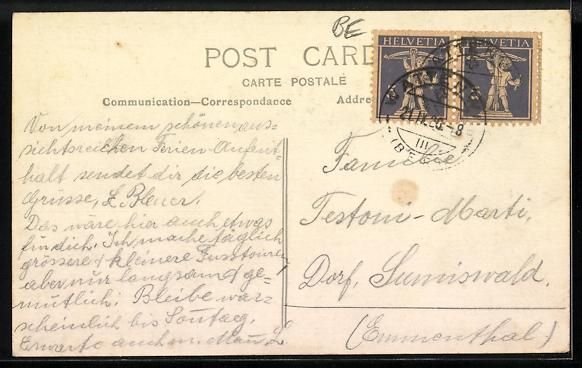 BE
POST CARD
CARTE POSTALE
Communication—Correspondance
Addre
HELVETIA
HELVETIA
21.IX.26.-8
III
(BE
Von meinem schönen aus-
sichtsreichen Ferien-Aufent-
halt sendet dir die besten
Grüsse, E. Bleuer.
Das wäre hier auch etwas
für dich. Ich mache täglich
grössere & kleinere Fusstouren,
aber nur langsam & ge-
mütlich. Bleibe war-
scheinlich bis Sonntag.
Erwarte auch m. Mann
Familie
Testoni-Marti,
Dorf, Sumiswald.
(Emmenthal)